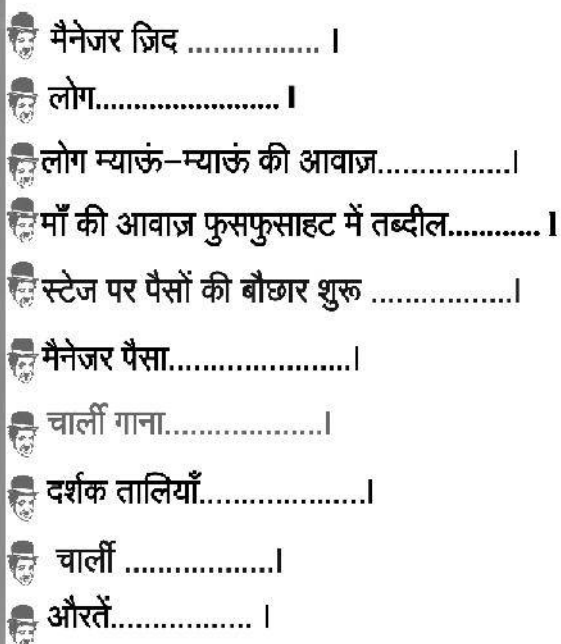 मैनेजर ज़िद ................ |
लोग........................ |
लोग म्याऊं–म्याऊं की आवाज़.................|
माँ की आवाज़ फुसफुसाहट में तब्दील............ |
स्टेज पर पैसों की बौछार शुरू ..................|
मैनेजर पैसा.......................|
चार्ली गाना...................|
दर्शक तालियाँ.....................|
चार्ली ...................|
औरतें.................. |